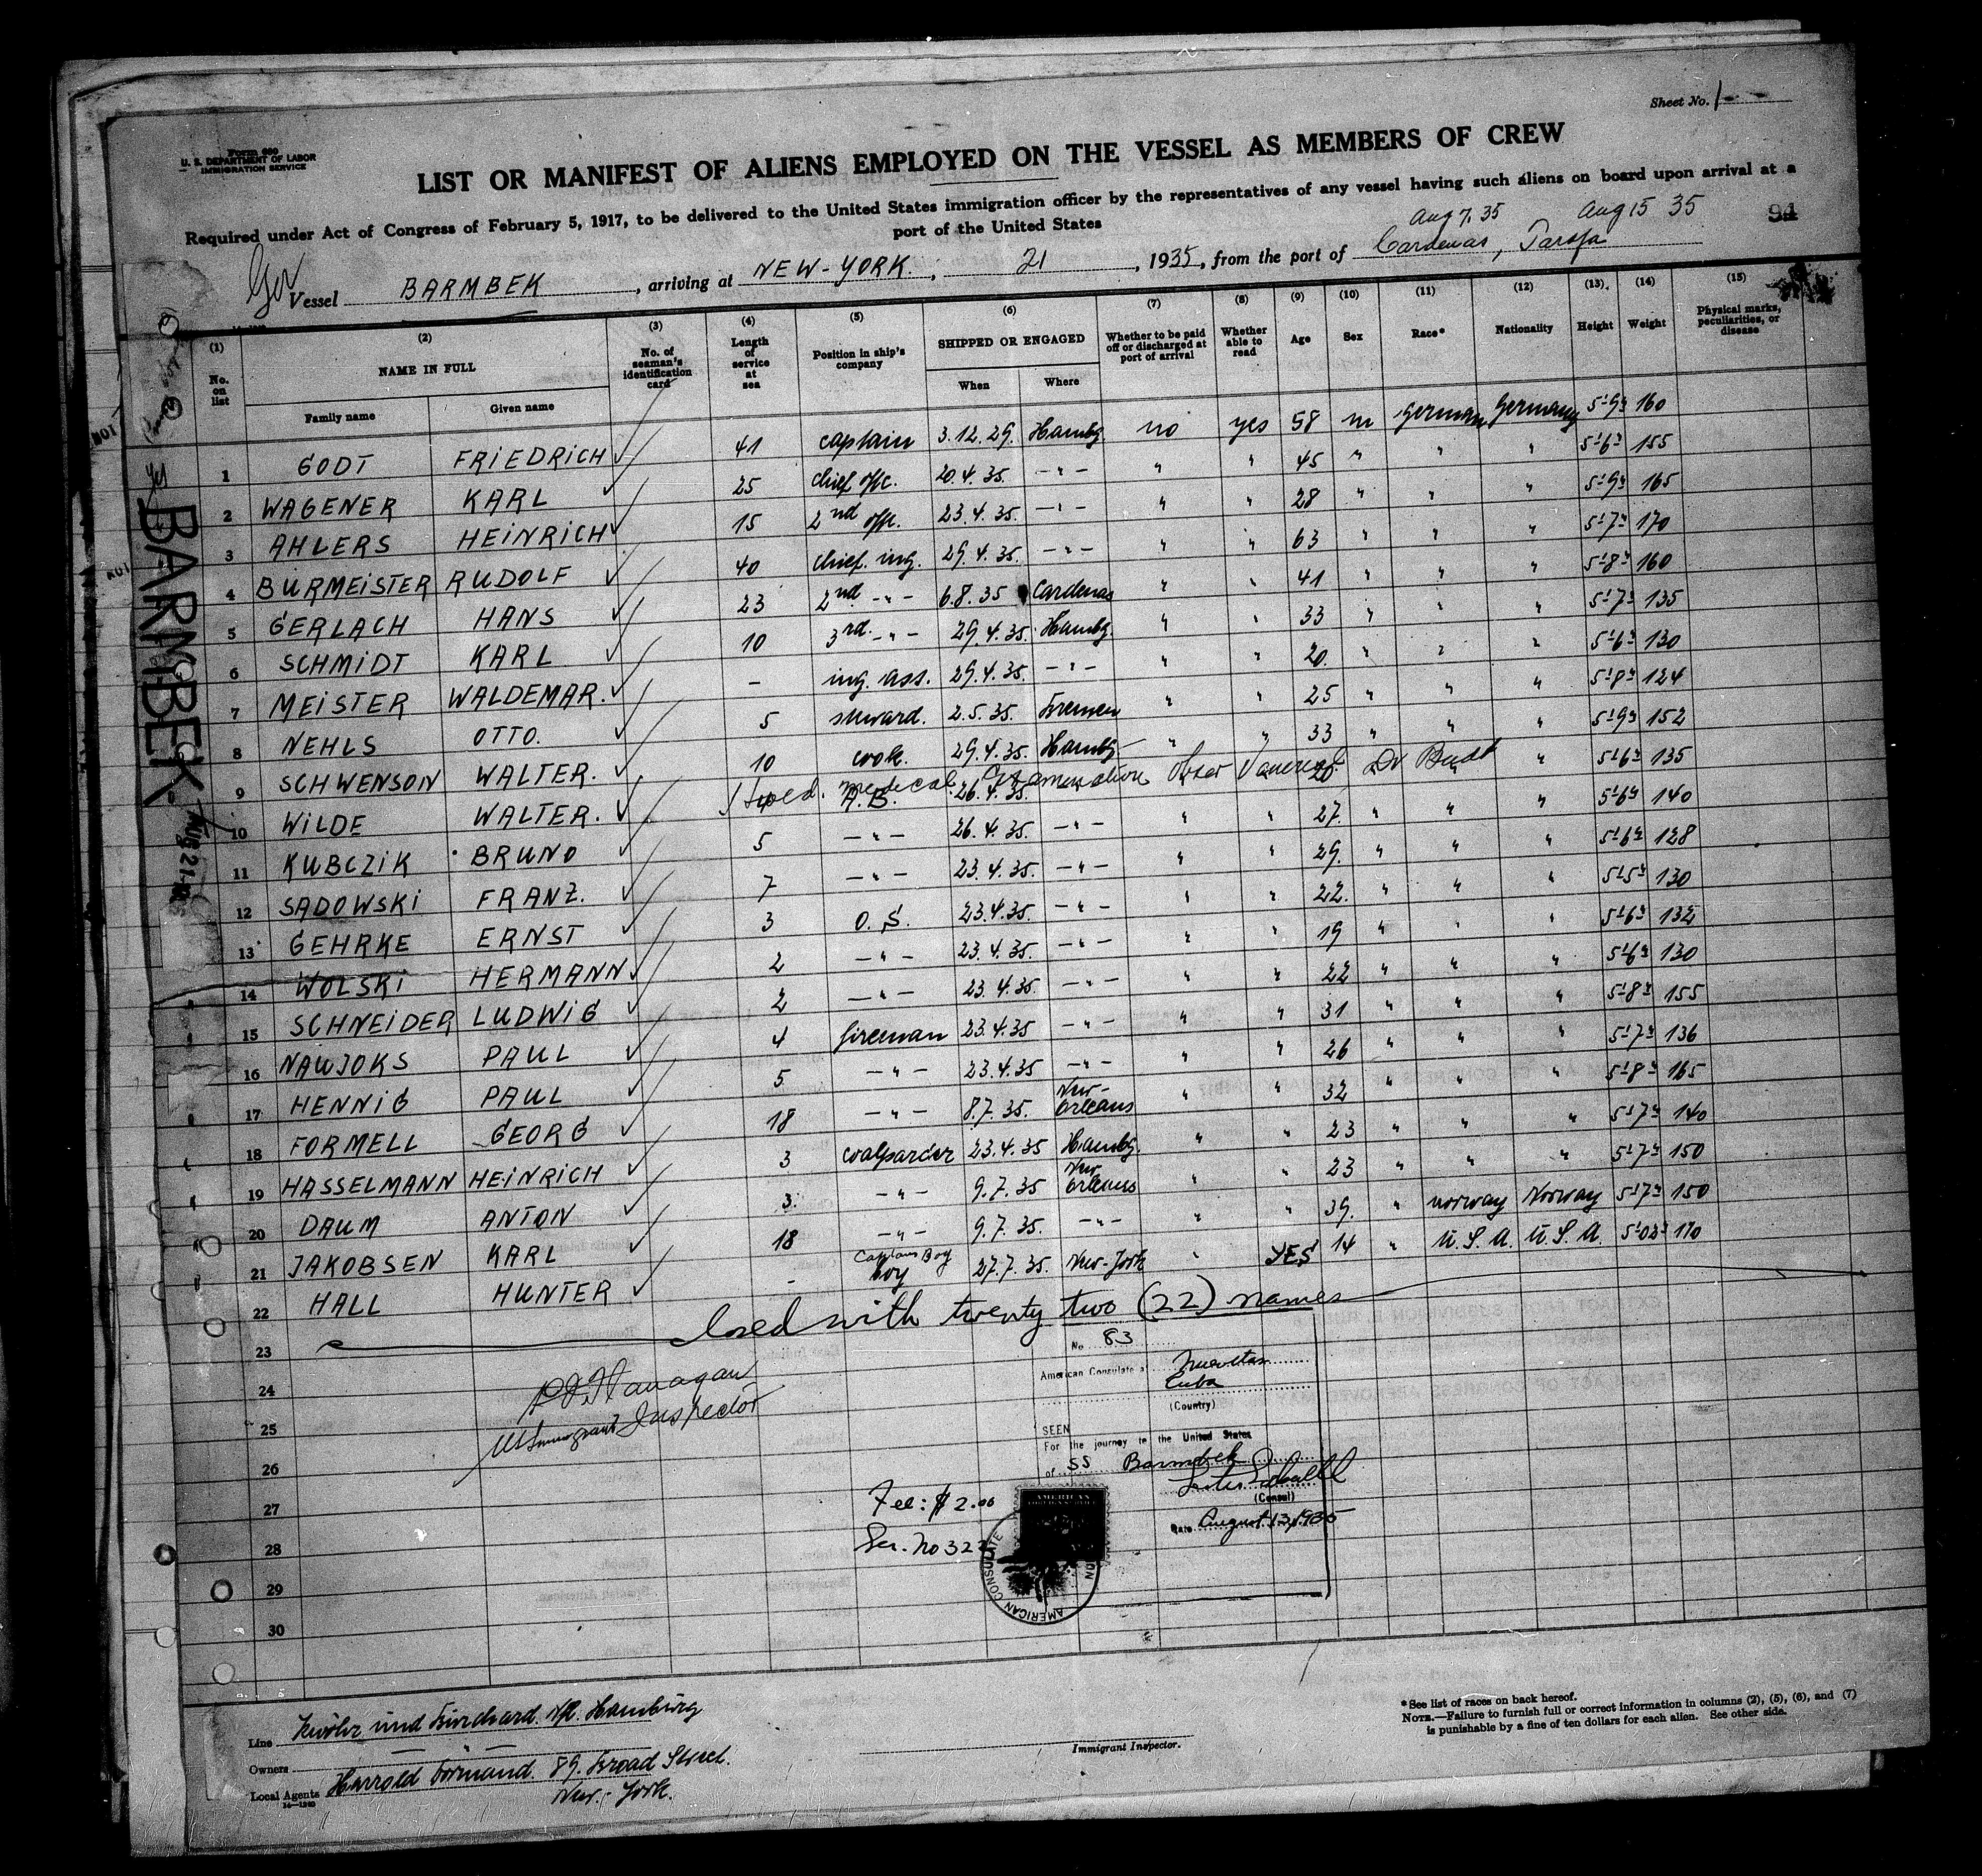 Sheet No. 1
Form 680
U. S. DEPARTMENT OF LABOR
IMMIGRATION SERVICE
LIST OR MANIFEST OF ALIENS EMPLOYED ON THE VESSEL AS MEMBERS OF CREW
Required under Act of Congress of February 5, 1917, to be delivered to the United States immigration officer by the representatives of any vessel having such aliens on board upon arrival at a
port of the United States
Aug 7, 35 Aug 15 35 94
Ger Vessel BARMBEK, arriving at NEW-YORK., 21, 1935, from the port of Cardenas, Tarafa
(1) (2) (3) (4) (5) (6) (7) (8) (9) (10) (11) (12) (13) (14) (15)
No. on list NAME IN FULL No. of seaman's identification card Length of service at sea Position in ship's company SHIPPED OR ENGAGED Whether to be paid off or discharged at port of arrival Whether able to read Age Sex Race* Nationality Height Weight Physical marks, peculiarities, or disease
Family name Given name When Where
1 GODT FRIEDRICH ✓ 41 captain 3.12.29. Hambg. no yes 58 m German Germany 5'9" 160
2 WAGENER KARL ✓ 25 chief offc. 20.4.35. -"- " " 45 " " " 5'6" 155
3 AHLERS HEINRICH ✓ 15 2nd offc. 23.4.35. -"- " " 28 " " " 5'9" 165
4 BURMEISTER RUDOLF ✓ 40 chief. ing. 29.4.35. -"- " " 63 " " " 5'7" 170
5 GERLACH HANS ✓ 23 2nd -"- 6.8.35 Cardenas " " 41 " " " 5'8" 160
6 SCHMIDT KARL ✓ 10 3rd. -"- 29.4.35. Hambg. " " 33 " " " 5'7" 135
7 MEISTER WALDEMAR. ✓ - ing. ass. 29.4.35. -"- " " 20. " " " 5'6" 130
8 NEHLS OTTO. ✓ 5 steward. 2.5.35. Bremen " " 25 " " " 5'8" 124
9 SCHWENSON WALTER. ✓ 10 cook. 29.4.35. Hambg. " " 33 " " " 5'9" 152
10 WILDE WALTER. ✓ A.B. 26.4.35. medical Examination Dr " " 5'6" 135
11 KUBCZIK BRUNO ✓ 5 -"- 26.4.35. -"- " " 27. " " " 5'6" 140
12 SADOWSKI FRANZ. ✓ 7 -"- 23.4.35. -"- " " 29. " " " 5'6" 128
13 GEHRKE ERNST ✓ 3 O.S. 23.4.35. -"- " " 22. " " " 5'5" 130
14 WOLSKI HERMANN ✓ 2 -"- 23.4.35. -"- " " 19 " " " 5'6" 132
15 SCHNEIDER LUDWIG ✓ 2 -"- 23.4.35. -"- " " 22 " " " 5'6" 130
16 NAUJOKS PAUL ✓ 4 fireman 23.4.35 -"- " " 31 " " " 5'8" 155
17 HENNIG PAUL ✓ 5 -"- 23.4.35 -"- " " 26 " " " 5'7" 136
18 FORMELL GEORG ✓ 18 -"- 8.7.35. New-Orleans " " 32 " " " 5'8" 165
19 HASSELMANN HEINRICH ✓ 3 coalpasser 23.4.35 Hambg. " " 23 " " " 5'7" 140
20 DAUM ANTON ✓ 3. -"- 9.7.35 New Orleans " " 23 " " " 5'7" 150
21 JAKOBSEN KARL ✓ 18 -"- 9.7.35. -"- " " 39. " norway Norway 5'7" 150
22 HALL HUNTER ✓ - Captains Boy boy 27.7.35. New-York " YES 14 " U.S.A. U.S.A. 5'02" 110
23 Closed with twenty two (22) names
24
25
26
27
28
29
30
Flanagan
US Immigrant Inspector
No. 83
American Consulate at Nuevitas
Cuba
(Country)
SEEN
For the journey to the United States
of SS Barmbek
(Consul)
Date August 13, 1935
Fee: $2.00
Ser. No 322
AMERICAN
AMERICAN CONSULATE
BARMBEK
Aug 21
Line und Burchard. Nfl. Hamburg
Owners
Local Agents Harrold Dormand. 89. Broad Street.
New-York.
14—1240
Immigrant Inspector.
*See list of races on back hereof.
NOTE.—Failure to furnish full or correct information in columns (2), (5), (6), and (7)
is punishable by a fine of ten dollars for each alien. See other side.